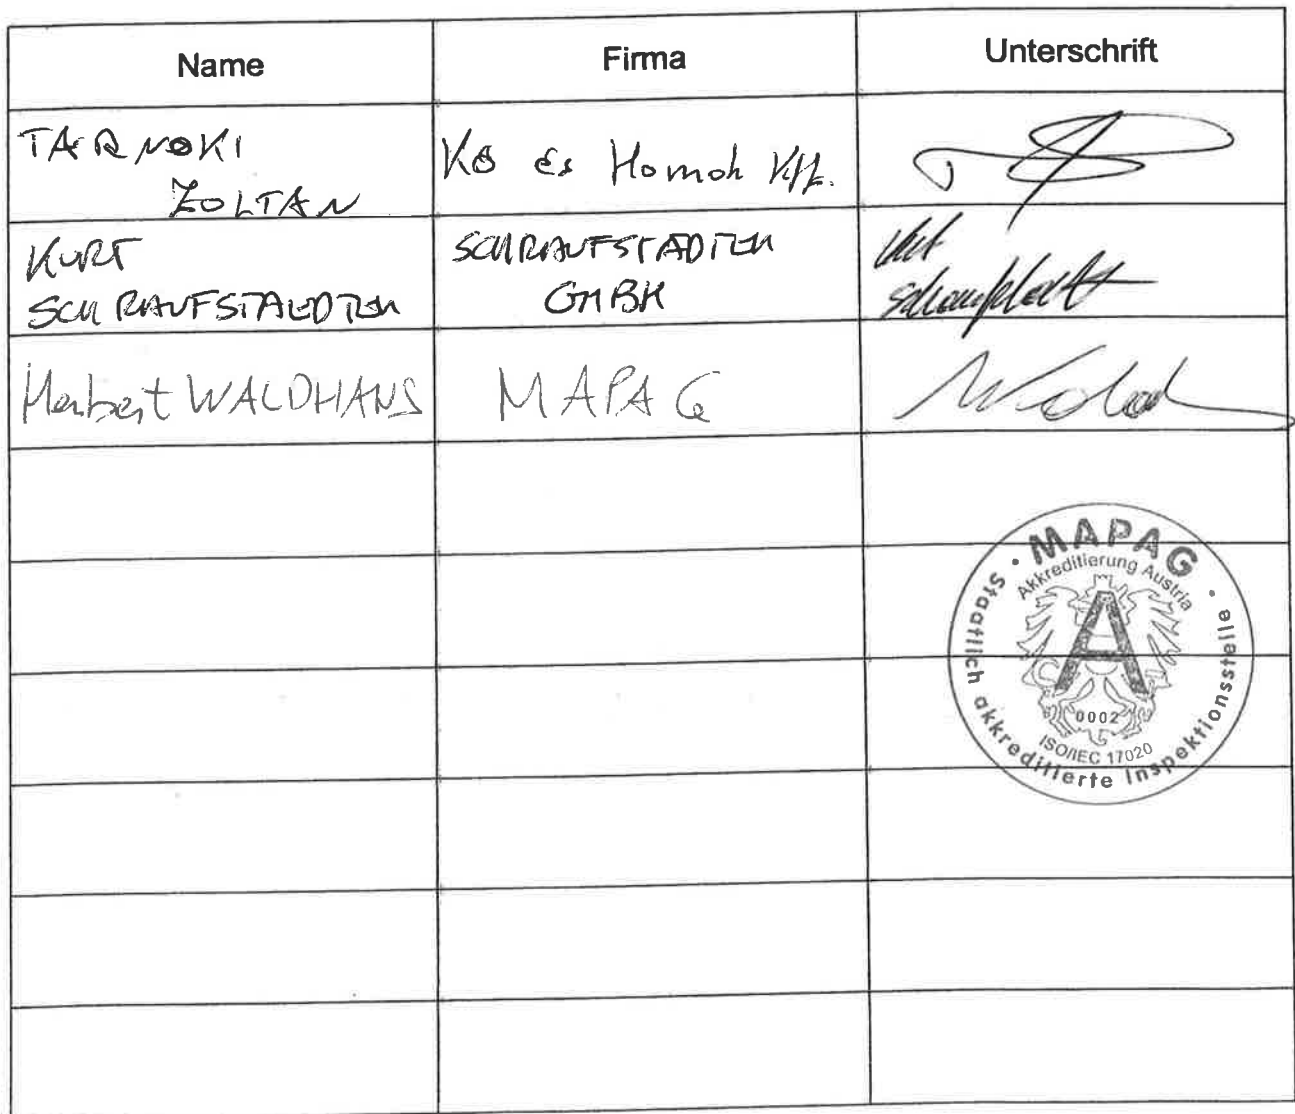 Name Firma Unterschrift
TARNOKI
ZOLTAN
Kő és Homok Kft.
KURT
SCHRAUFSTAEDTER
SCHRAUFSTÄDTER
GMBH
Kurt
Herbert WALDHANS
MAPAG
· MAPAG ·
Akkreditierung Austria
A
0002
ISO/IEC 17020
Staatlich akkreditierte Inspektionsstelle